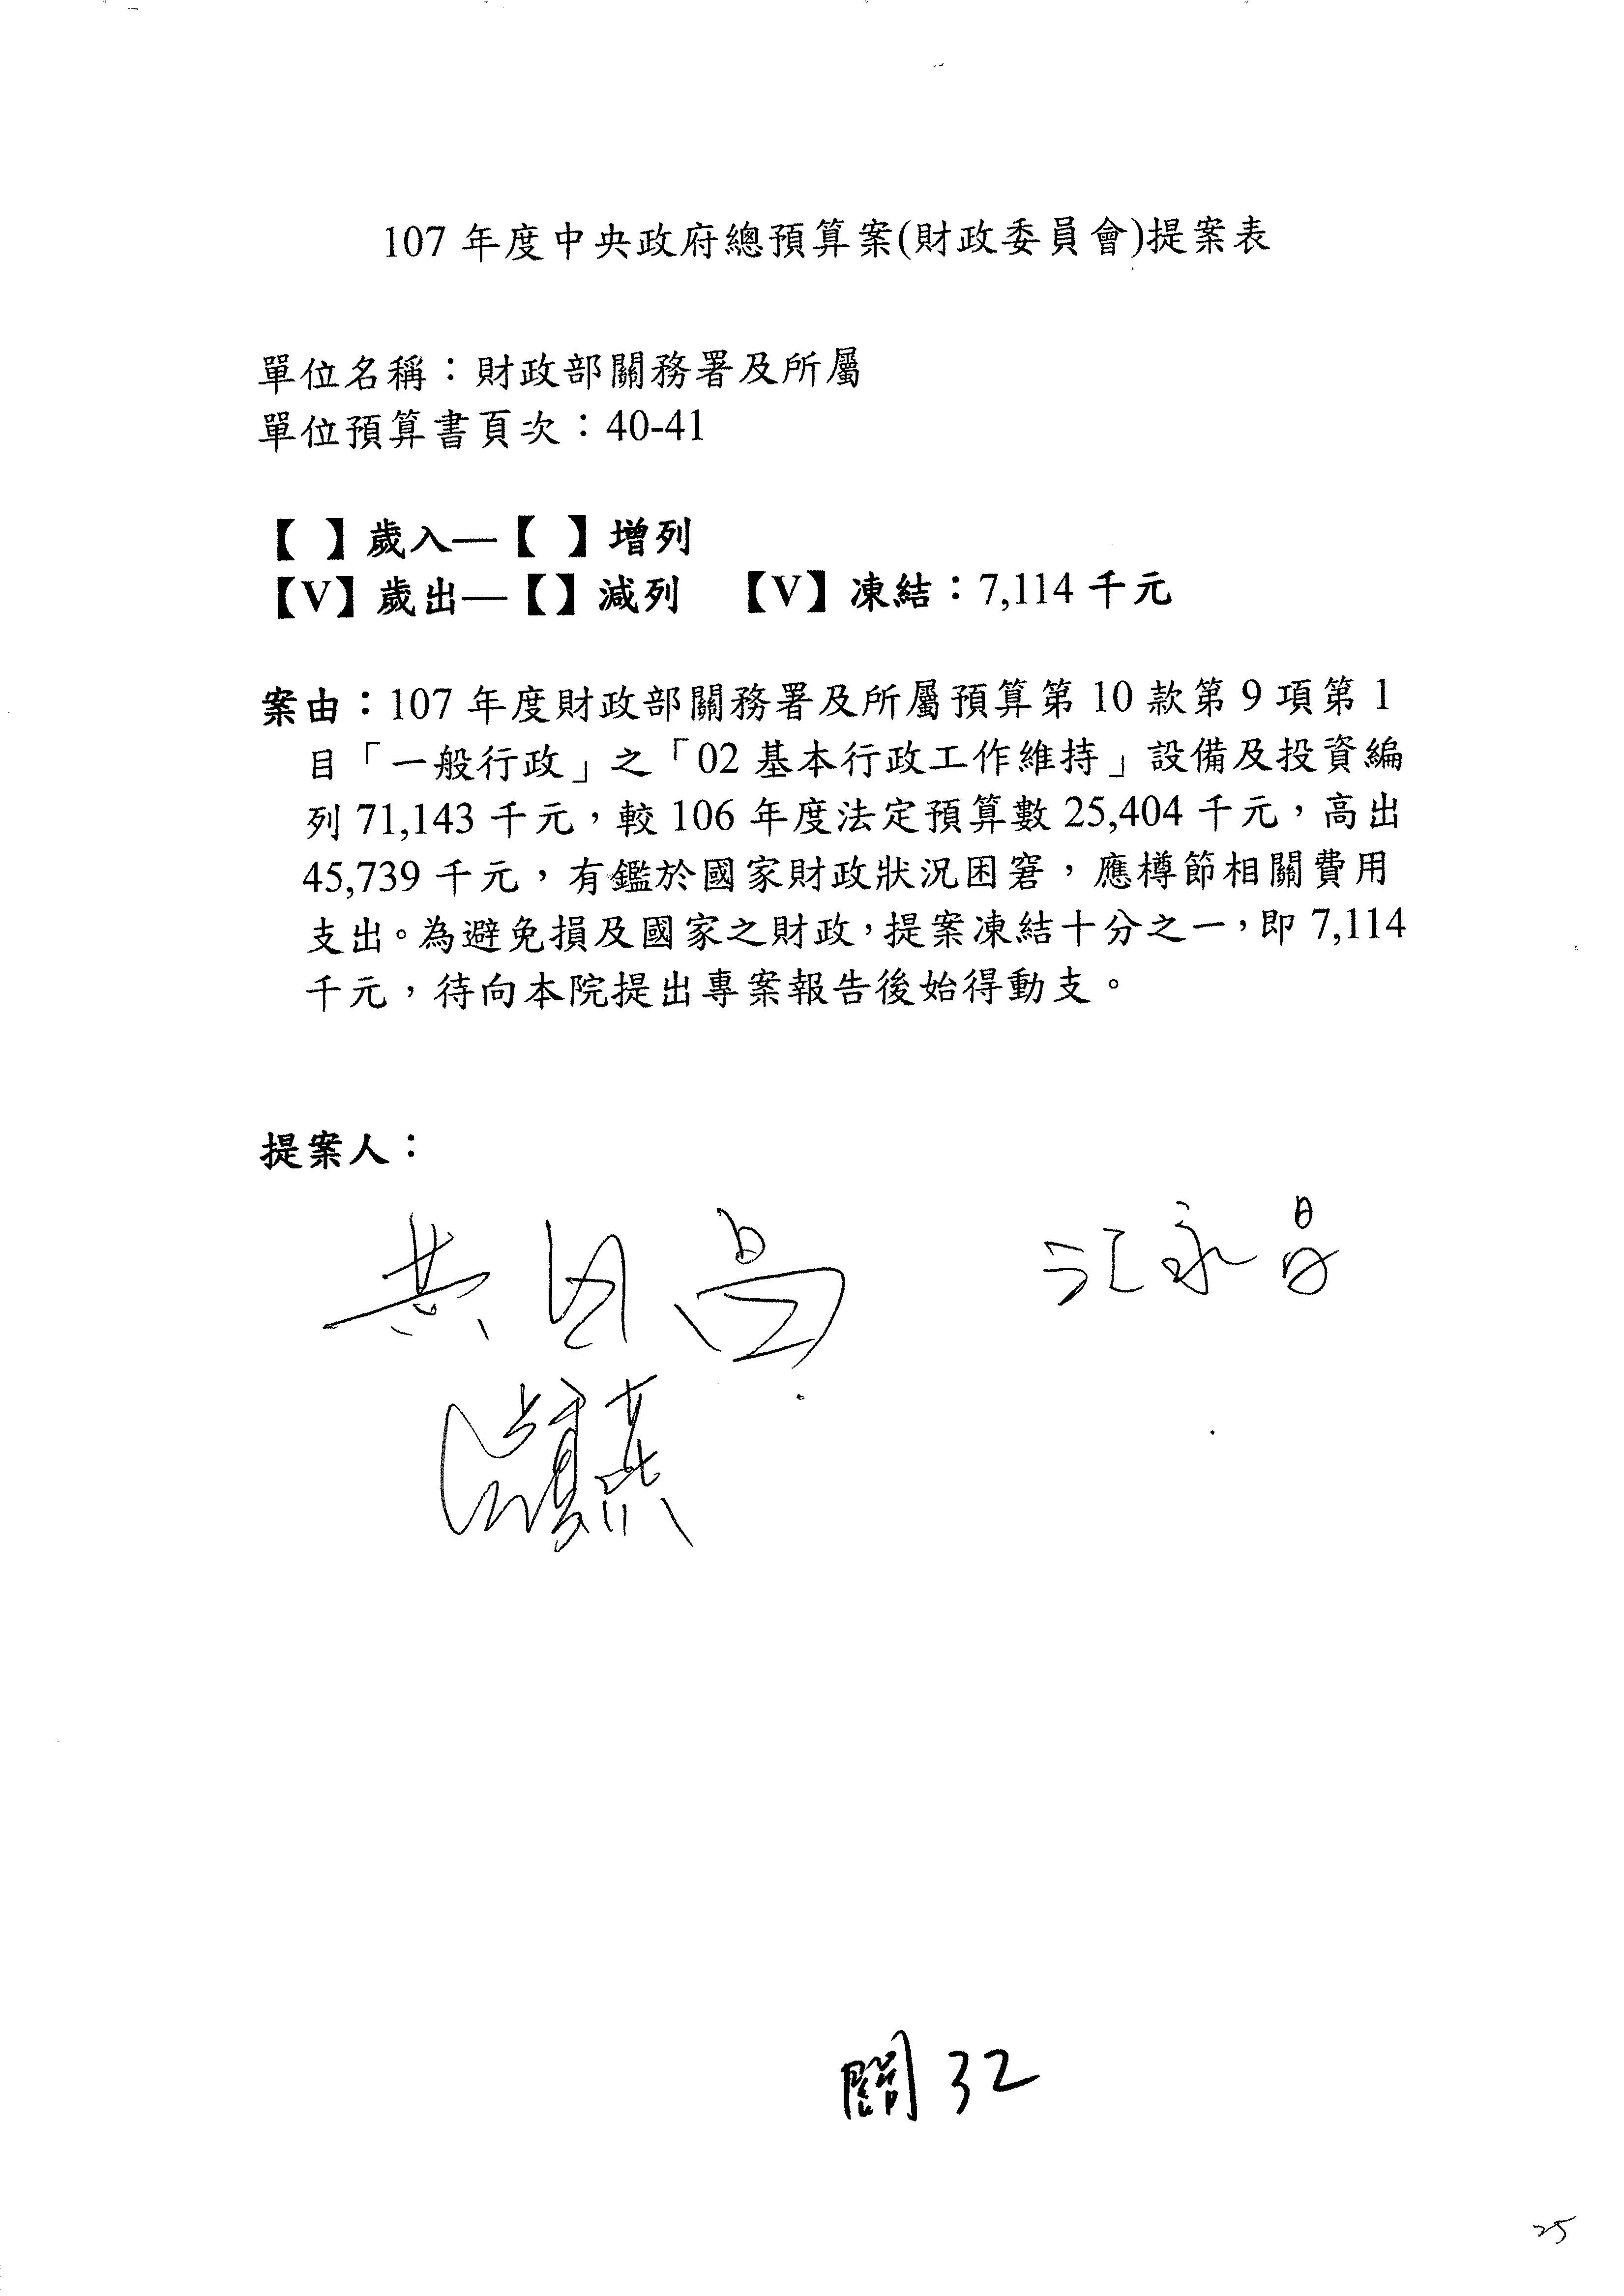 107 年度中央政府總預算案(財政委員會)提案表
單位名稱：財政部關務署及所屬
單位預算書頁次：40-41
【 】歲入—【 】增列
【V】歲出—【】減列 【V】凍結：7,114 千元
案由：107 年度財政部關務署及所屬預算第 10 款第 9 項第 1
目「一般行政」之「02 基本行政工作維持」設備及投資編
列 71,143 千元，較 106 年度法定預算數 25,404 千元，高出
45,739 千元，有鑑於國家財政狀況困窘，應樽節相關費用
支出。為避免損及國家之財政，提案凍結十分之一，即 7,114
千元，待向本院提出專案報告後始得動支。
提案人：
黃國昌 江永昌
關 32
25